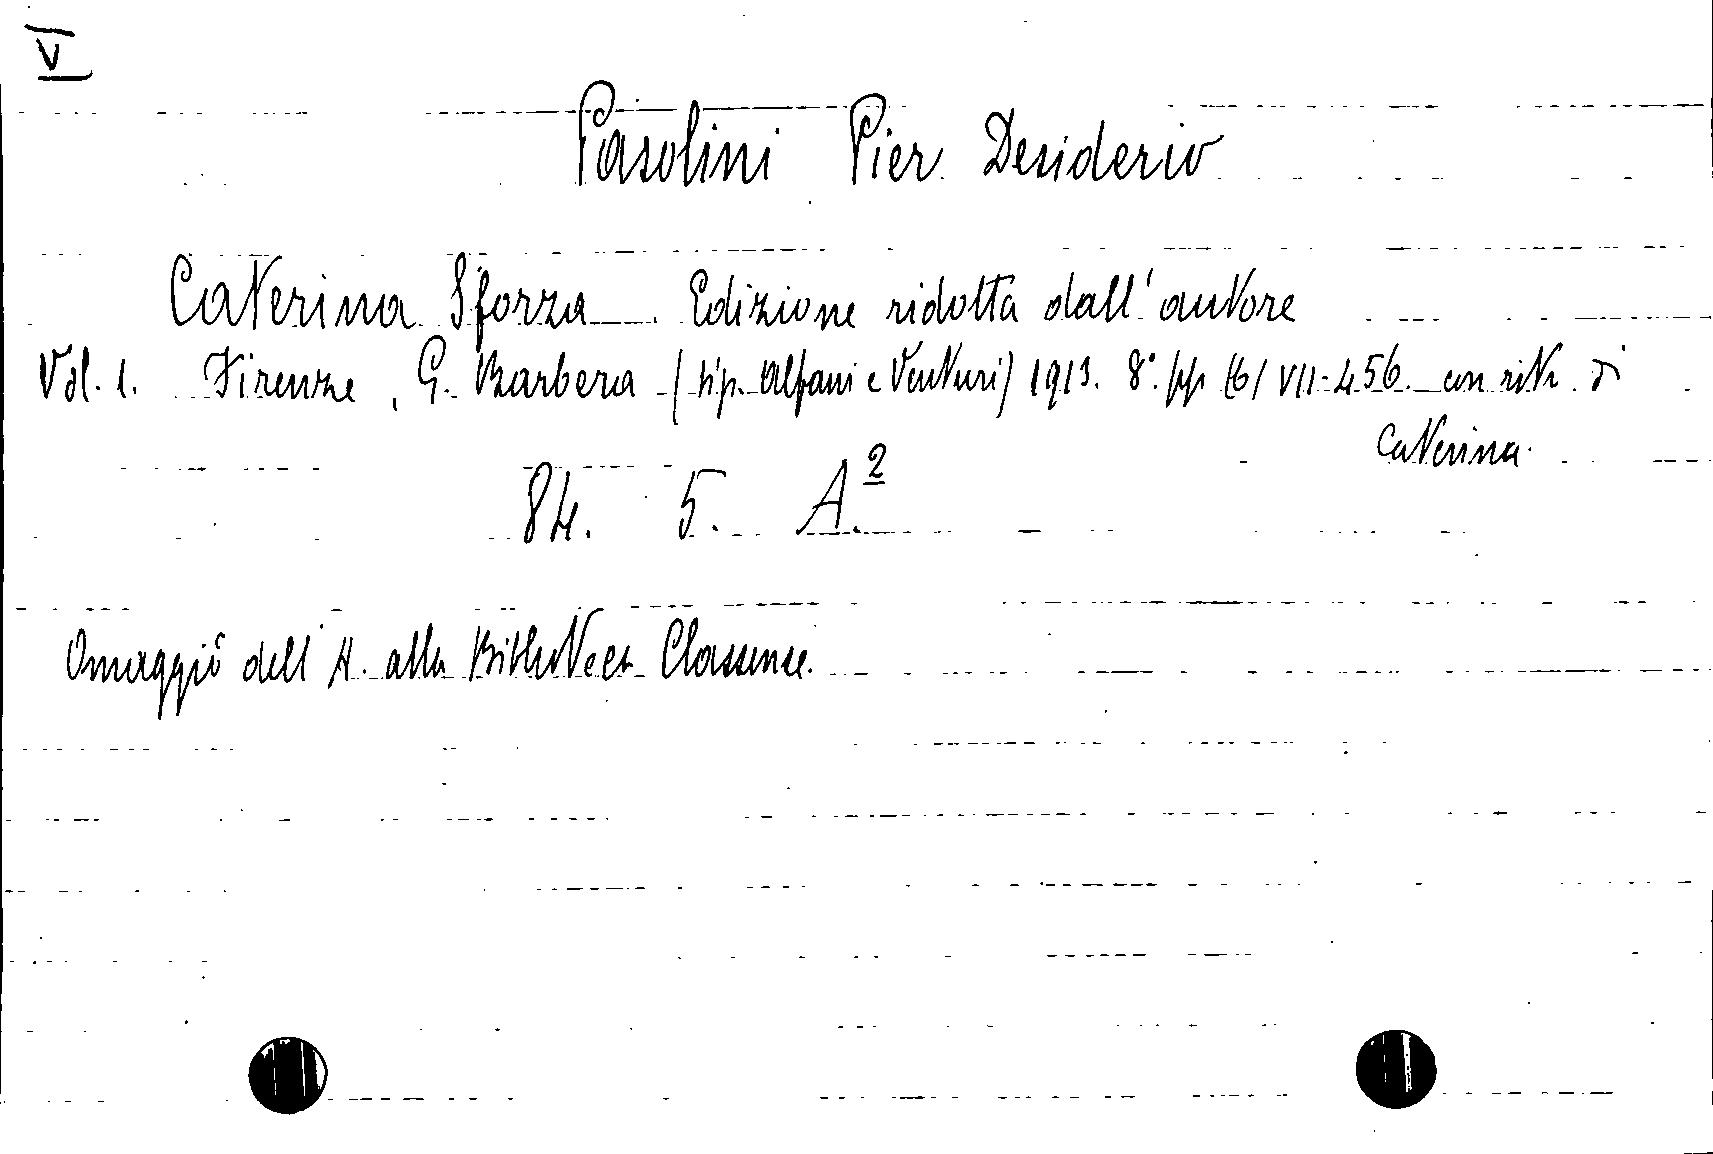 V
Pasolini Pier Desiderio
Caterina Sforza. Edizione ridotta dall'autore
Vol. 1. Firenze, G. Barbera (tip. Alfani e Venturi) 1913. 8° pp (6) VII-456. con ritr. di
Caterina.
84. 5. A.2
Omaggio dell'A. alla Biblioteca Classense.